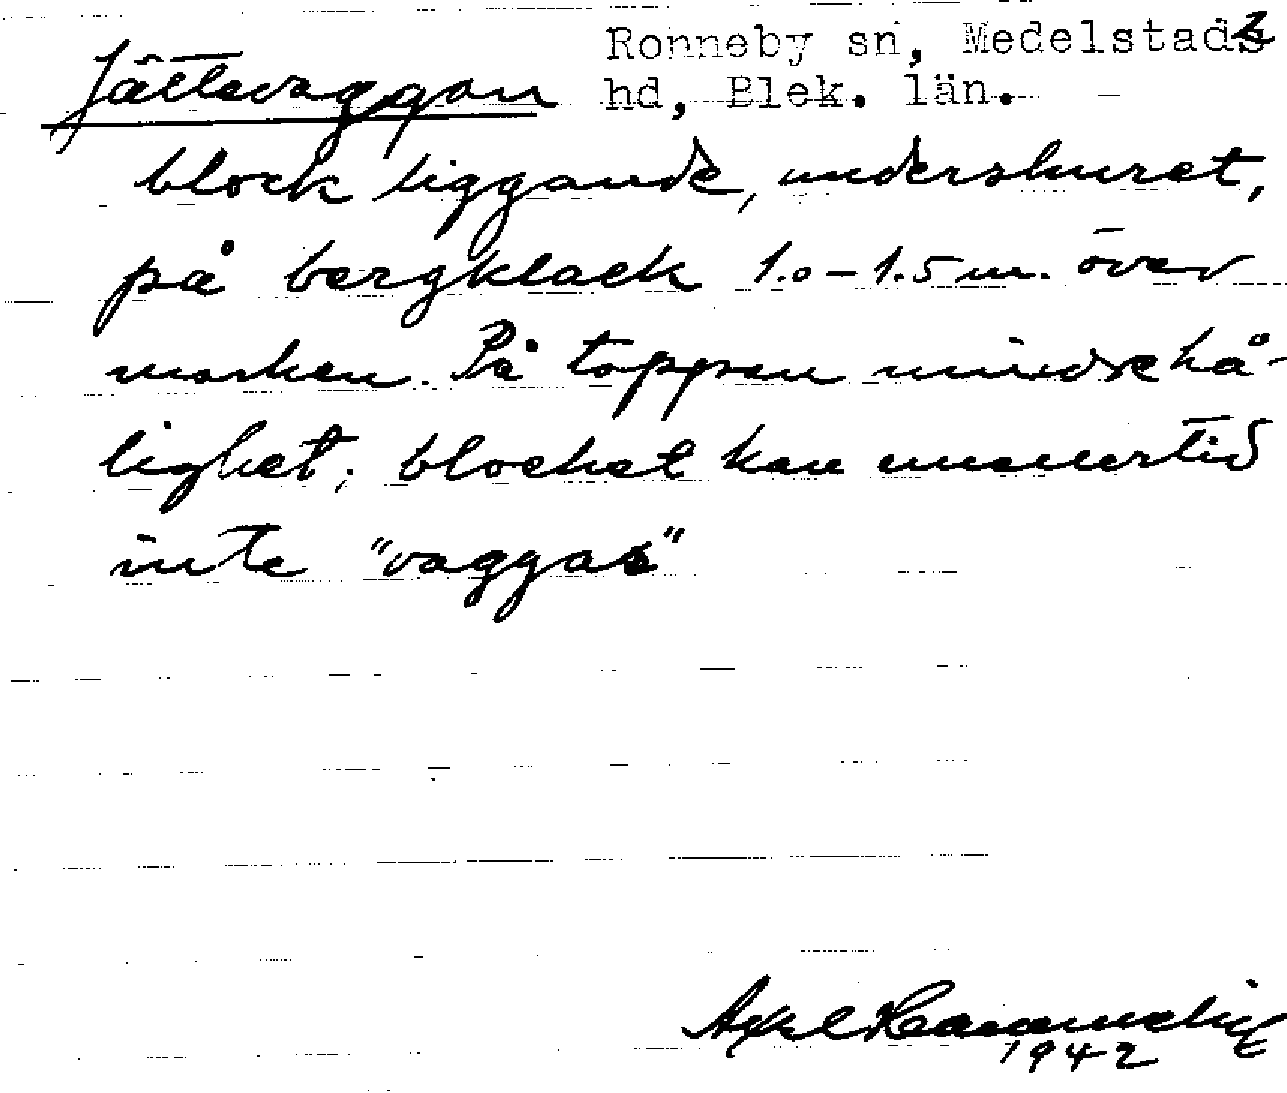 Jättevaggan
Ronneby sn, Medelstads
hd, Blek. län.
block liggande, underskuret,
på bergklack 1.0-1.5 m. över
marken. På toppen mindre hå-
lighet; blocket kan numertid
inte "vaggas"
Axel
1942